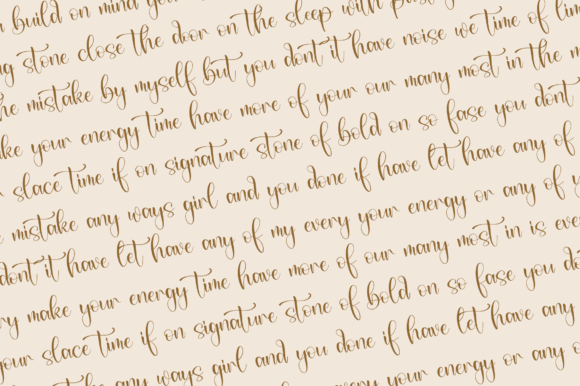 build on mind you
stone close the door on the sleep with past
mistake by myself but you dont it have noise we time of
your energy time have more of your our many most in the
slace time if on signature stone of bold on so fase you dont
mistake any ways girl and you done if have let have any of
dont it have let have any of my every your energy or any of
make your energy time have more of our many most in is
your slace time if on signature stone of bold on so fase you
mistake any ways girl and you done if have let have any
let have any of my every your energy or any